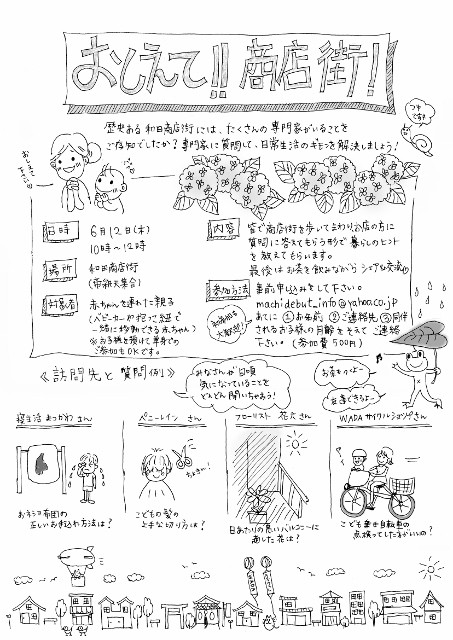 おしえて!! 商店街!
歴史ある 和田商店街には、たくさんの専門家がいることを
ご存知でしたか? 専門家に質問して、日常生活のギモンを解決しましょう!
日時
6月12日(木)
10時〜12時
場所
和田商店街
対象者
赤ちゃんを連れた親子
(ベビーカーや抱っこ紐で
一緒に移動できる赤ちゃん)
※お子様を預けて単身での
ご参加もOKです。
内容
皆で商店街を歩いてまわりお店の方に
質問に答えてもらう形で 暮らしのヒント
を教えてもらいます。
最後はお茶を飲みながら シェア&交流
参加方法
事前申し込みをして下さい。
machidebut_info@yahoo.co.jp
あてに ①お名前 ②ご連絡先 ③同伴
されるお子様の月齢をそえて ご連絡
下さい。 (参加費500円)
お茶もつくよー
≪訪問先と質問例≫
みなさんが日頃
気になっていることを
どんどん聞いちゃおう!
寝生活 あつがわ さん
ペニーレイン さん
フローリスト 花六 さん
WADAサイクルショップ さん
おネショ布団の
正しいお手入れ方法は?
こどもの髪の
上手な切り方は?
日あたりの悪いバルコニーに
適した花は?
こども乗せ自転車の
点検ってした方がいいの?